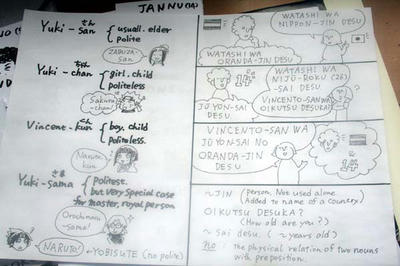 JANNU(
Yuki-san さん { usuall. elder
polite
ZABUZA-
SAN
Yuki-chan ちゃん { girl, child
politeless.
Sakura-
chan!
Vincent-kun くん { boy, child
politeless.
Naruto-
kun.
Yuki-sama さま { Politest.
but Very Special case
for master, royal person
Orochimaru-
sama!
NARUTO!
YOBISUTE (no polite)
WATASHI WA
NIPPON-JIN DESU
WATASHI WA
ORANDA-JIN DESU
14才
WATASHI WA
NIJŪ-ROKU (26)
-SAI DESU
JŪ YON-SAI
DESU
VINCENTO-SAN WA
OIKUTSU DESUKA?
VINCENTO-SAN WA
JŪ YON-SAI NO
ORANDA-JIN DESU
14才
~JIN (person, Not used alone.
Added to name of a country)
OIKUTSU DESUKA?
(How old are you?)
~ sai desu. (~ years old)
no : the physical relation of two nouns
with preposition.